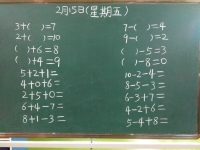 2月15日(星期五)
3+( )=7 7-( )=4
2+( )=10 9-( )=2
( )+6=8 ( )-5=3
( )+4=9 ( )-8=0
5+2+1= 10-2-4=
4+0+6= 8-5-3=
2+5+0= 6-3+7=
6+4-7= 4-2+6=
8+1-3= 5-4+8=